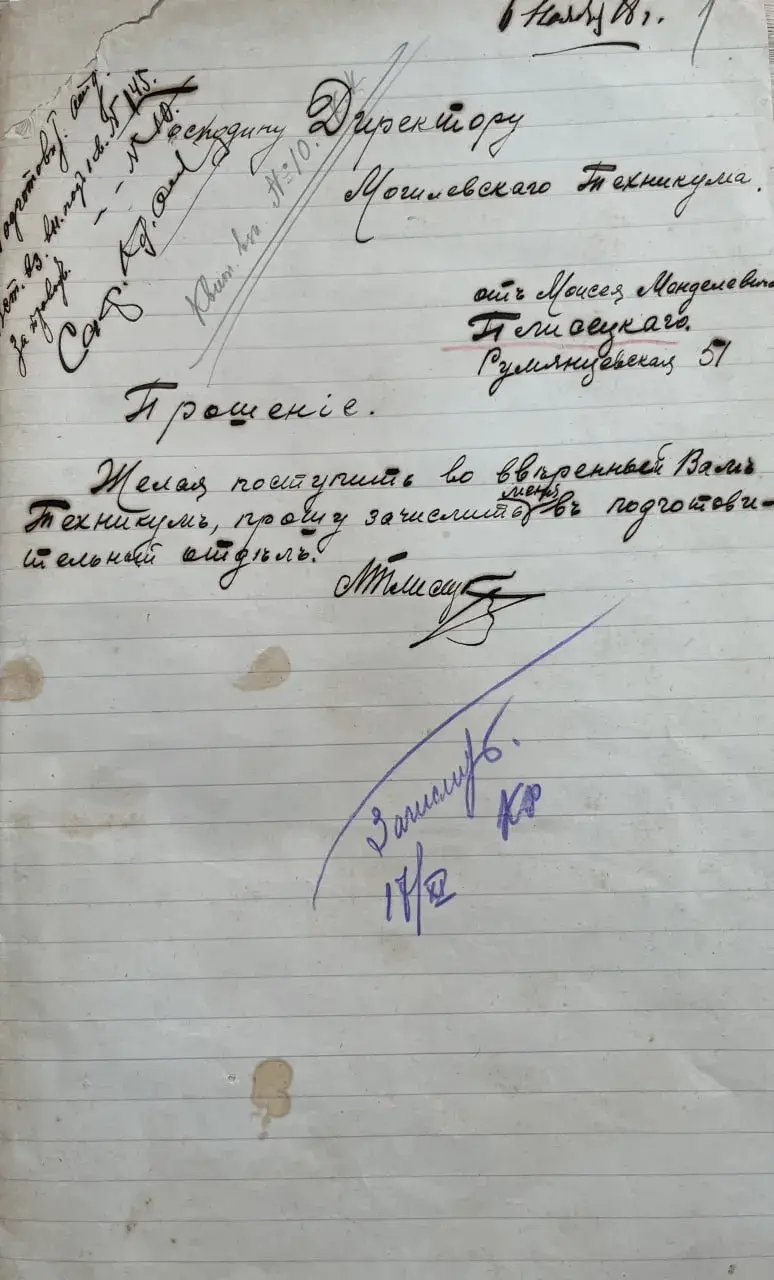 6 Ноября 18 г. 1
Подготовит. отд.
вз. вн. под кв. № 145.
за прав. — „ — № 10.
Квит. кн. № 10.
Господину Директору
Могилевскаго Техникума.
отъ Моисея Менделевича
Плисецкаго.
Румянцевская 51
Прошеніе.
Желая поступить во ввѣренный Вамъ
Техникумъ, прошу зачислить меня въ подготови-
тельный отдѣлъ.
МПлисец
Зачислить.
КФ
17/XI